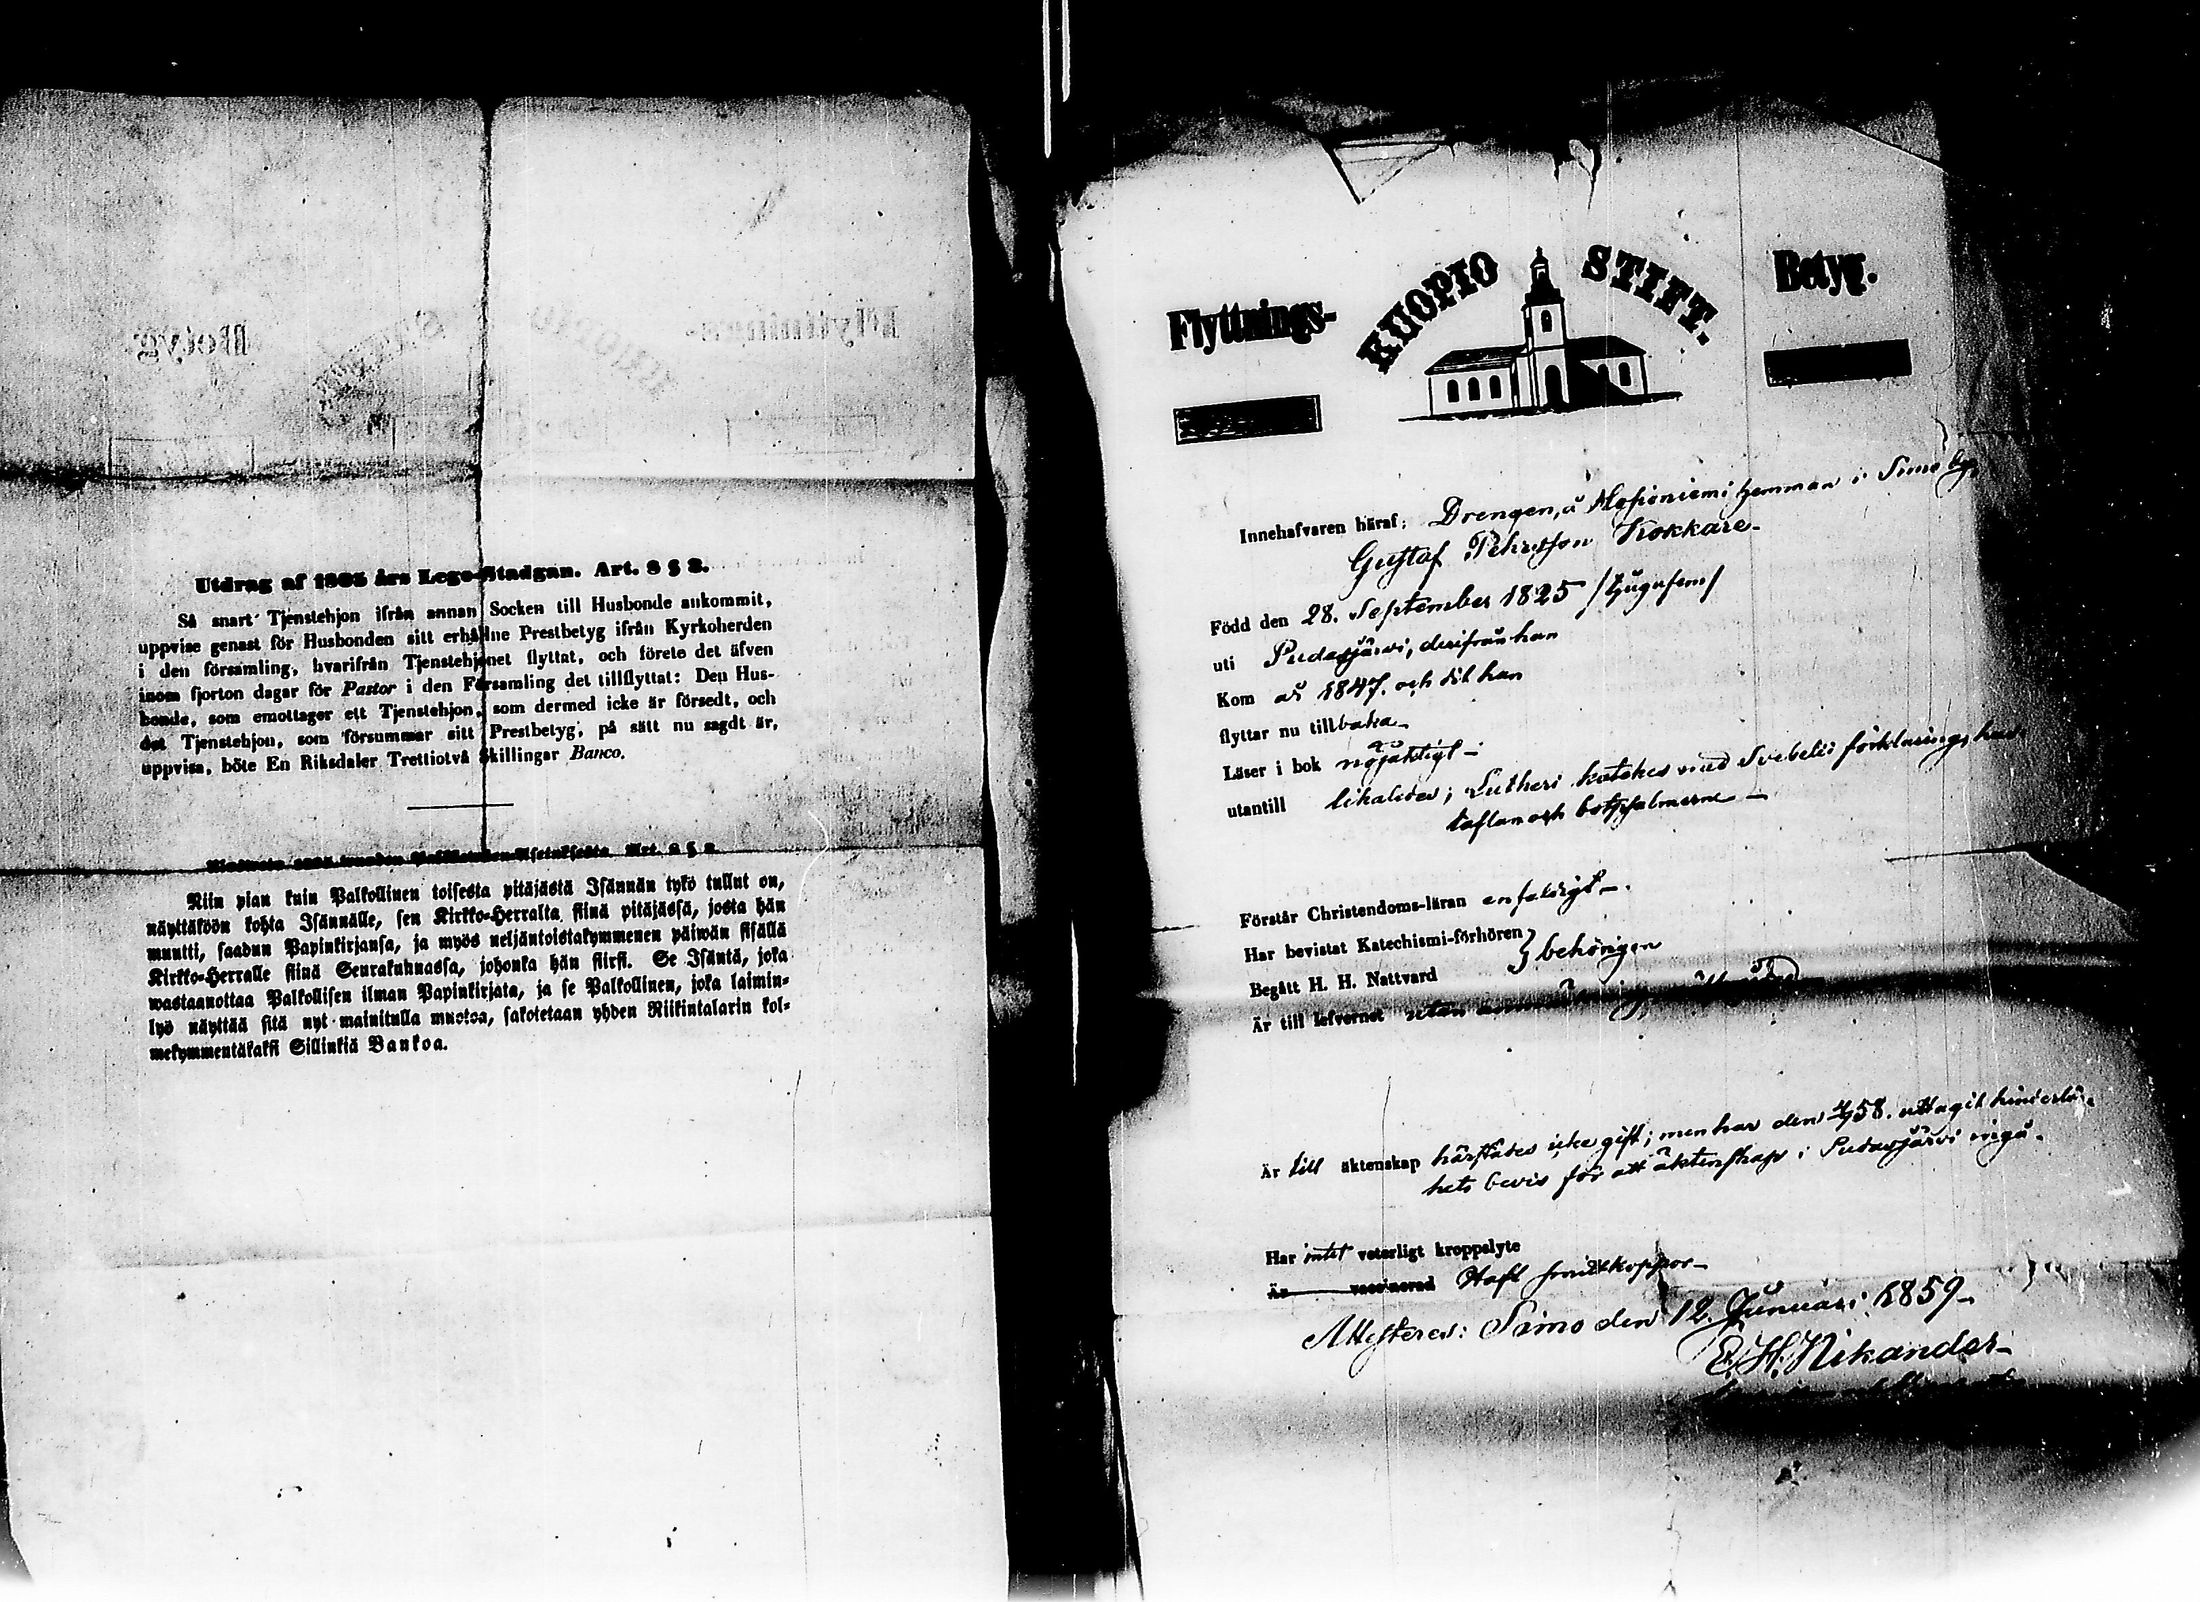 Utdrag af 1805 års Lego-Stadgan. Art. 8 § 2.
Så snart Tjenstehjon ifrån annan Socken till Husbonde ankommit,
uppvise genast för Husbonden sitt erhållne Prestbetyg ifrån Kyrkoherden
i den församling, hvarifrån Tjenstehjonet flyttat, och förete det äfven
inom fjorton dagar för Pastor i den Församling det tillflyttat: Den Hus-
bonde, som emottager ett Tjenstehjon, som dermed icke är försedt, och
det Tjenstehjon, som försummar sitt Prestbetyg, på sätt nu sagdt är,
uppvisa, böte En Riksdaler Trettiotvå Skillingar Banco.
Art. 8 § 2.
Niin pian kuin Palkollinen toisesta pitäjästä Isännän tykö tullut on,
näyttäköön kohta Isännälle, sen Kirkko-Herralta siinä pitäjässä, josta hän
muutti, saadun Papinkirjansa, ja myös neljäntoistakymmenen päiwän sisällä
Kirkko-Herralle siinä Seurakunnassa, johonka hän siirsi. Se Isäntä, joka
wastaanottaa Palkollisen ilman Papinkirjata, ja se Palkollinen, joka laimin-
lyö näyttää sitä nyt mainitulla muotoa, sakotetaan yhden Riikintalarin kol-
mekymmentäkaksi Sillinkiä Bankoa.
Flyttnings- KUOPIO STIFT. Betyg.
Innehafvaren häraf: Drengen, å hemman i Simo by,
Gustaf Pehrsson Kokkare
Född den 28. September 1825 /tjugufem/
uti Pudasjärvi, derifrån han
Kom år 1847. och dit han
flyttar nu tillbaka
Läser i bok nöjaktigt
utantill likaledes; Lutheri katekes med Svebelii förklaring, hus-
taflan och botpsalmerne
Förstår Christendoms-läran enfaldigt
Har bevistat Katechismi-förhören } behörigen
Begått H. H. Nattvard
Är till lefvernet utan
Är till äktenskap härstädes icke gift; men har den 58. uttagit hinderlös-
hets bevis för att äktenskap i Pudasjärvi ingå.
Har intet veterligt kroppslyte
Är vaccinerad Haft smittkoppor
Attesteras: Simo den 12. Januari 1859
E. H. Nikander